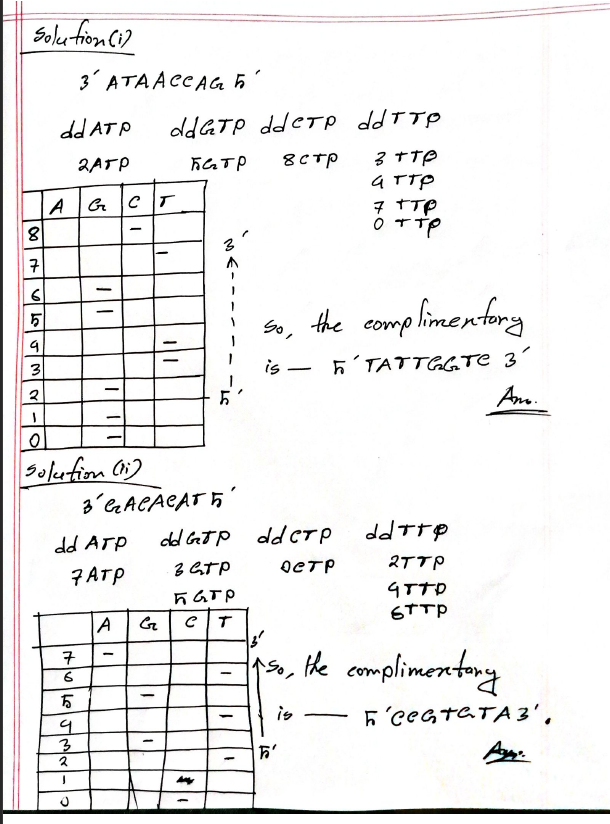 Solution (i)
3' ATAACCAG 5'
ddATP ddGTP ddCTP ddTTP
2ATP 5GTP 8CTP 3TTP
4TTP
7TTP
0TTP
A G C T
8
7
6
5
4
3
2
1
0
3'
5'
So, the complimentary
is — 5' TATTGGTC 3'
Ans.
Solution (ii)
3' GACACAT 5'
ddATP ddGTP ddCTP ddTTP
7ATP 3GTP 0CTP 2TTP
5GTP 4TTP
6TTP
A G C T
7
6
5
4
3
2
1
0
3'
5'
So, the complimentary
is — 5' CCGTGTA 3'.
Ans.